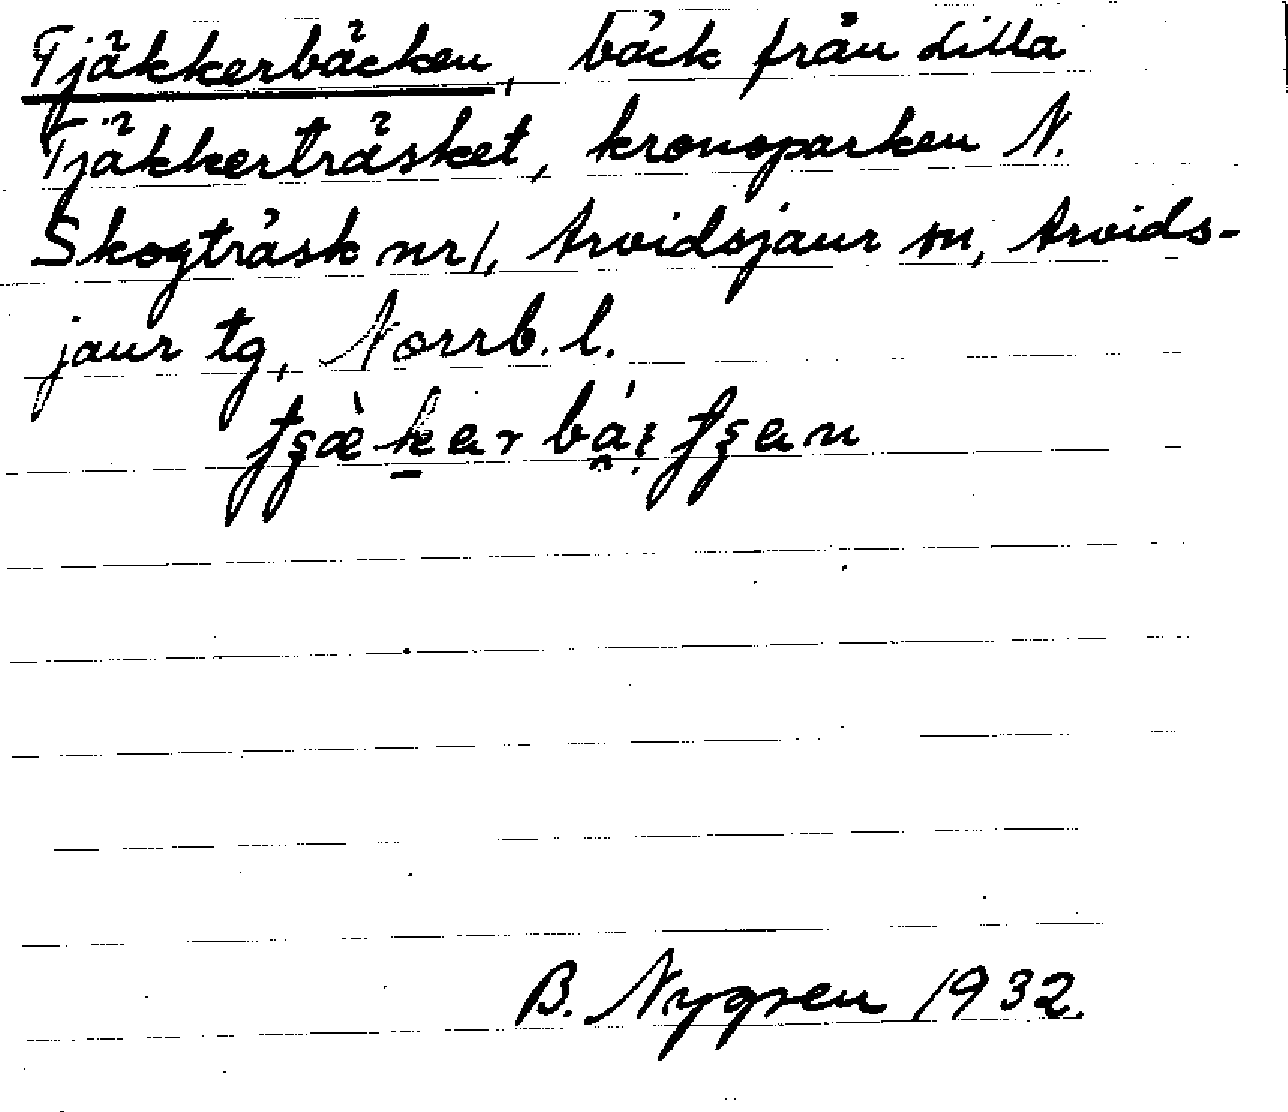 Tjäkkerbäcken, bäck från Lilla
Tjäkkerträsket, kronoparken N.
Skogträsk nr 1, Arvidsjaur sn, Arvids-
jaur tg, Norrb. l.
B. Nygren 1932.